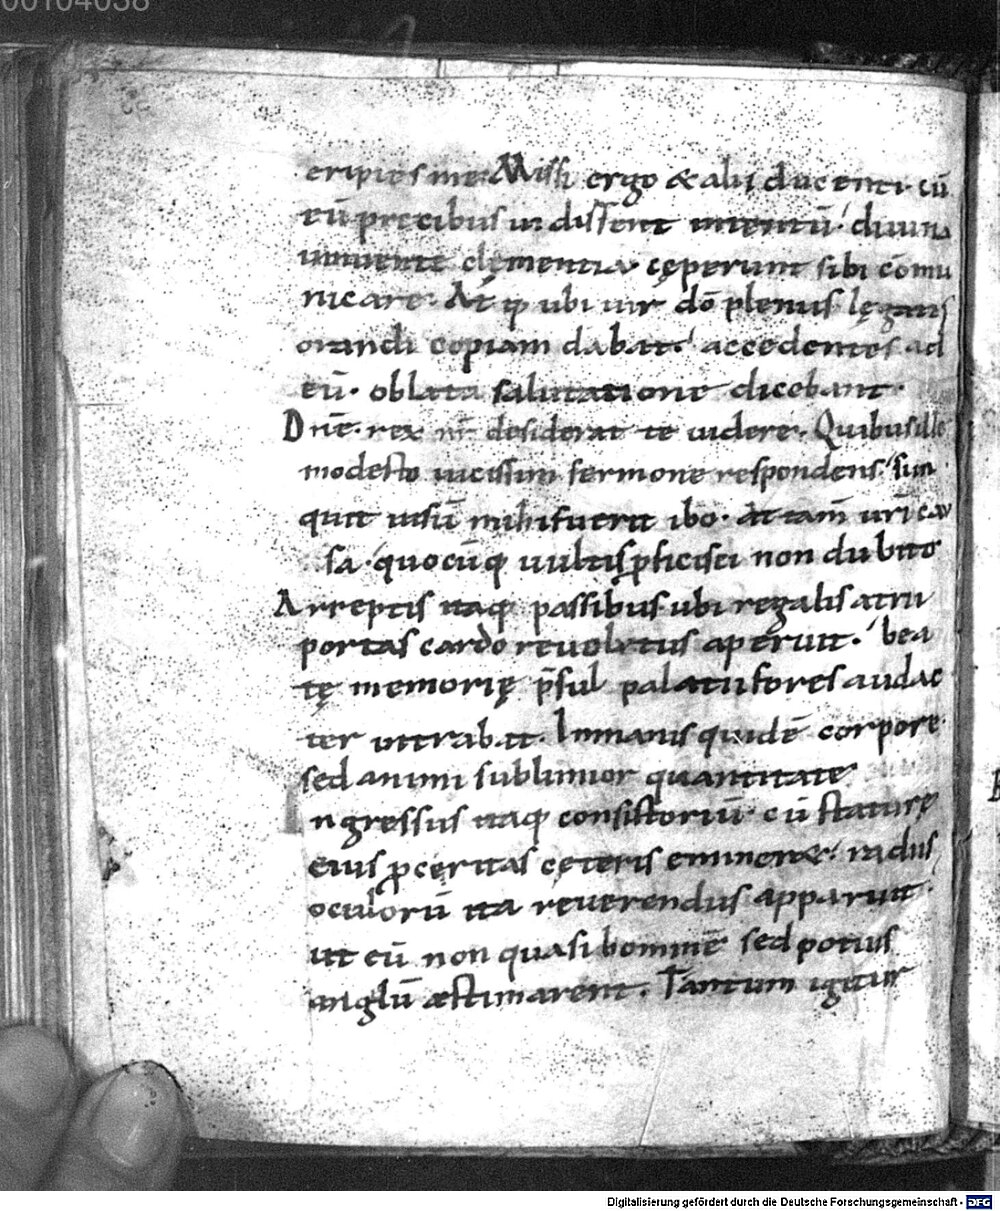 00104038
eripies me. Missi ergo & alii ducenti. cū
eū precibus uidissent intentū. diuina
inuente clęmentia. cęperunt sibi cōmu
nicare. At q; ubi uir dō plenus lęgatis
orandi copiam dabat. accedentes ad
eū. oblata salutatione dicebant.
Dn̄e. rex nr̄ desiderat te uidere. Quibus ille
modesto uicissim sermone respondens. si in
quit uisū mihi fuerit ibo. at tam̄ uri̅ cau
sa. quocūq; uultis ꝓficisci non dubito
Arreptis itaq; passibus ubi regalis atrii
portas cardo reuolutus aperuit. bea
tę memorię p̄sul palatii fores audac
ter intrabat. Inmanis quidē corpore
sed animi sublimior quantitate
ngressus itaq; consistoriū. cū staturę
eius ꝓcęritas cęteris emineret. radius
oculorū ita reuerendus apparuit.
ut eū non quasi hominē sed potius
anglū æstimarent. Tantum igitur
Digitalisierung gefördert durch die Deutsche Forschungsgemeinschaft - DFG